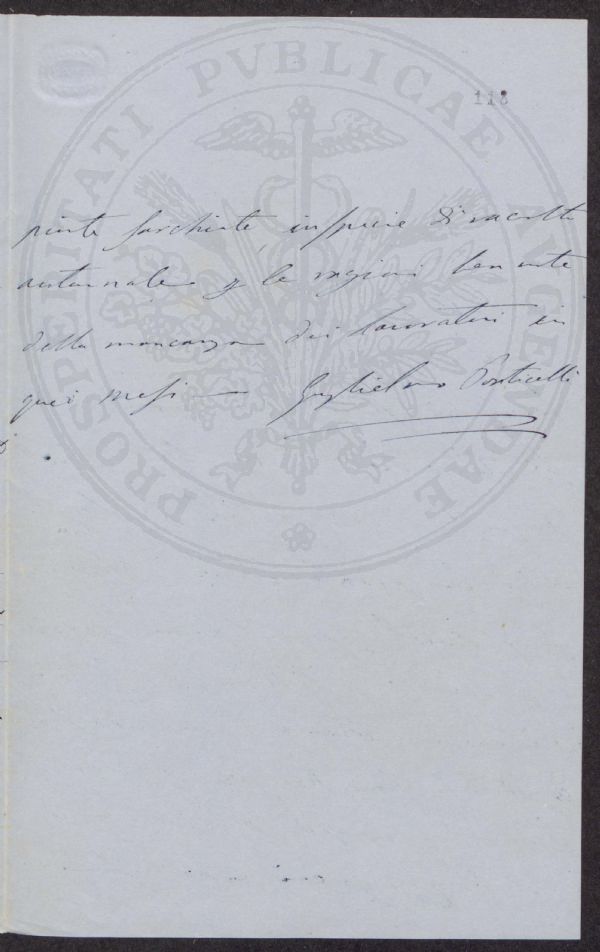 PROSPERITATI PVBLICAE AVGENDAE
118
piante sarchiate, in specie di raccolta
autunnale p le ragioni ben note
della mancanza dei lavoratori in
quei mesi — Guglielmo Ponticelli